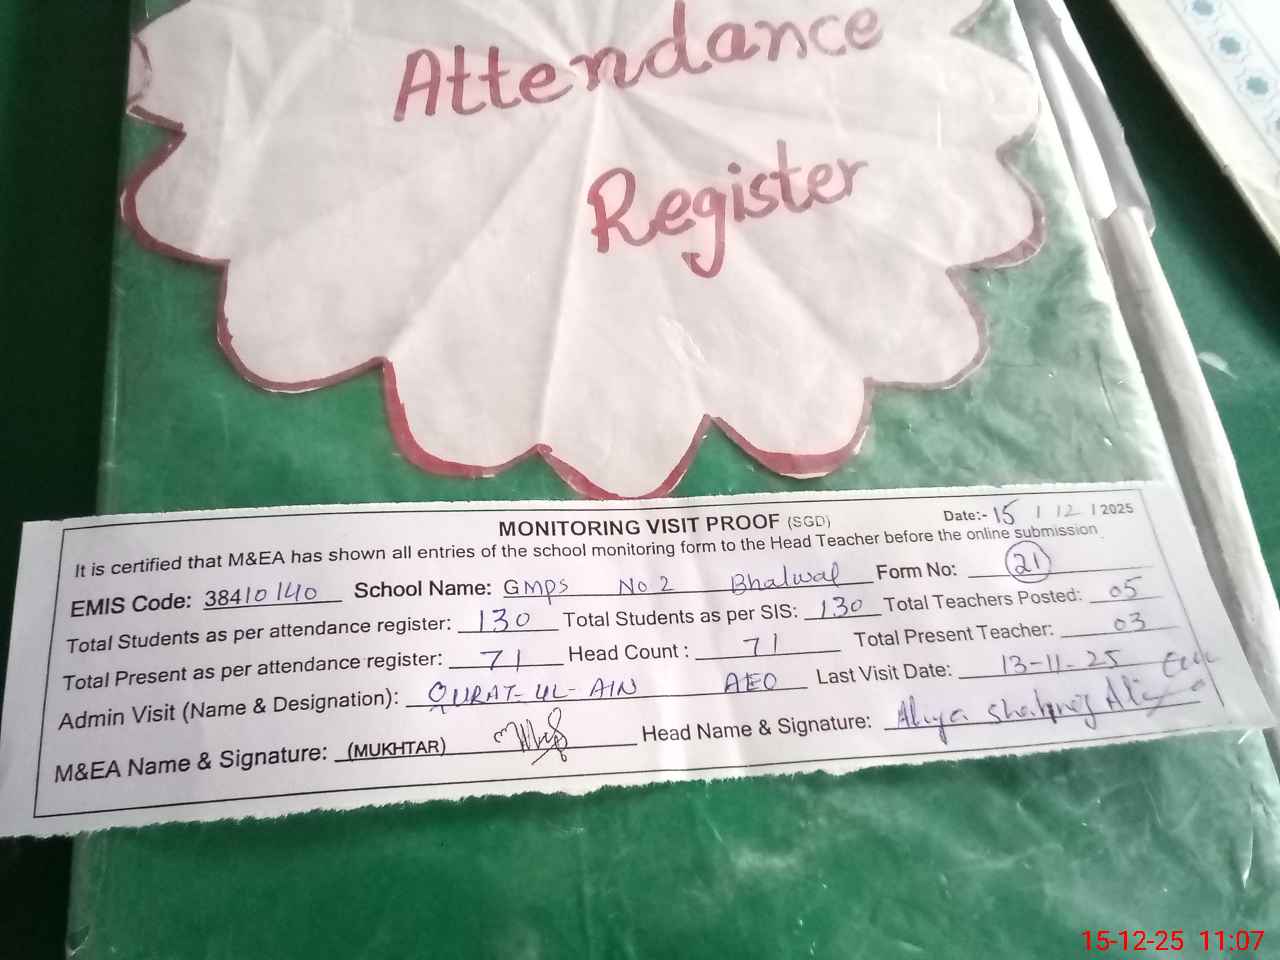 Attendance
Register
MONITORING VISIT PROOF (SGD)
Date:- 15 / 12 / 2025
It is certified that M&EA has shown all entries of the school monitoring form to the Head Teacher before the online submission
EMIS Code: 38410140 School Name: GMPS No 2 Bhalwal Form No: 21
Total Students as per attendance register: 130 Total Students as per SIS: 130 Total Teachers Posted: 05
Total Present as per attendance register: 71 Head Count : 71 Total Present Teacher: 03
Admin Visit (Name & Designation): QURAT-UL-AIN AEO Last Visit Date: 13-11-25
M&EA Name & Signature: (MUKHTAR) Head Name & Signature: Aliya
15-12-25 11:07